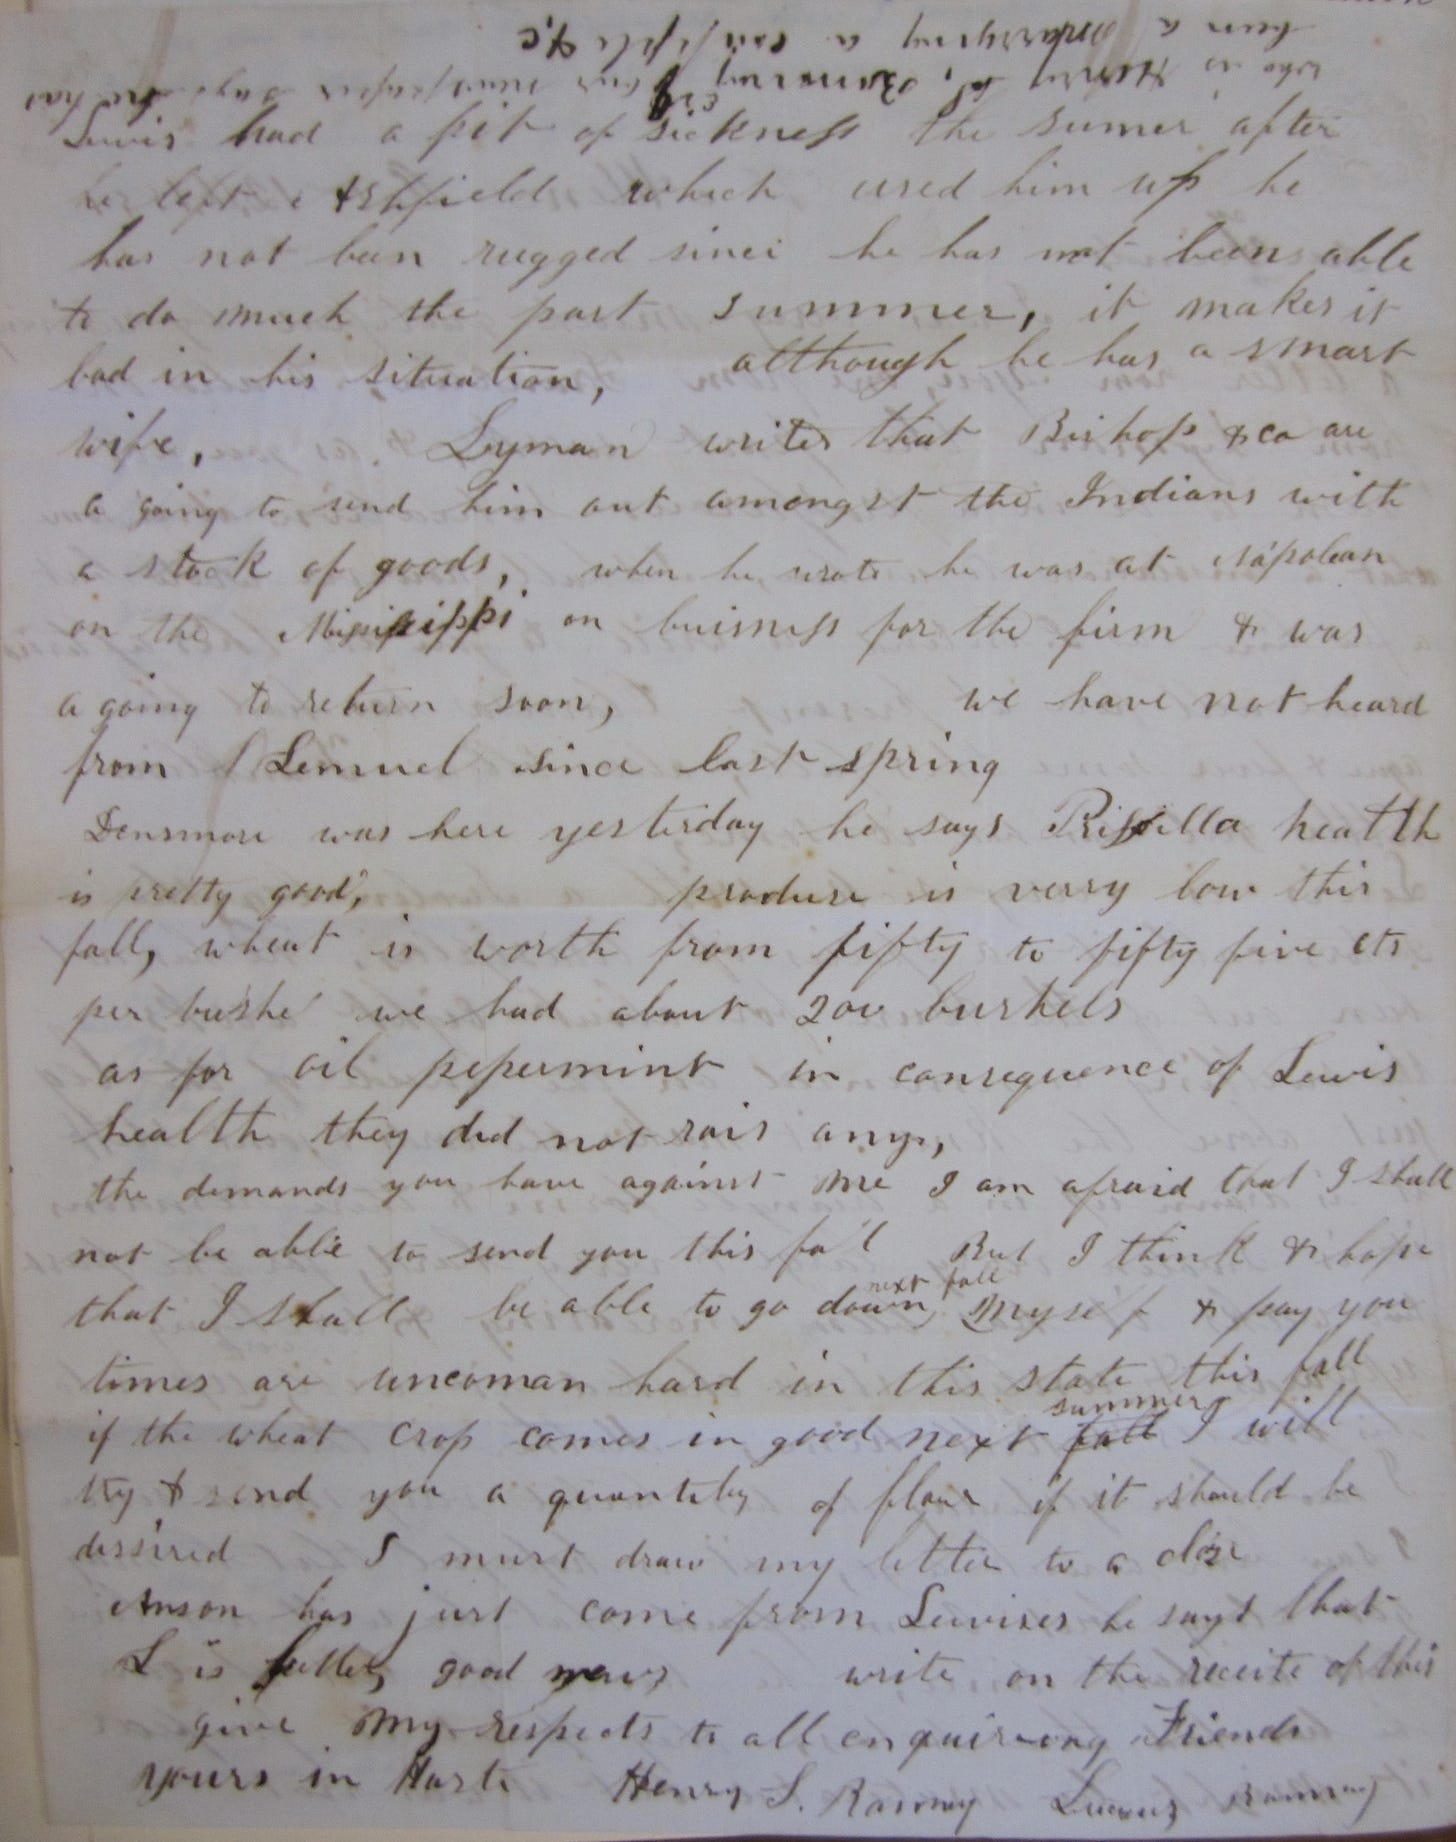 who is Henry L. Ranney, our newspaper says he has
been a Marrying a couple &c
Lewis had a fit of sickness the sumer after
he left Ashfield which used him up he
has not ben rugged since he has not been able
to do much the past summer, it makes it
bad in his situation, although he has a smart
wife, Lyman writes that Bishop & co are
a going to send him out amongst the Indians with
a stock of goods, when he wrote he was at Napolean
on the Missisippi on buisness for the firm & was
a going to return soon, we have not heard
from Lemuel since last spring
Densmore was here yesterday he says Prissilla health
is pretty good, produce is verry low this
fall, wheat is worth from fifty to fifty five cts
per bushel we had about 200 bushels
as for oil pepermint in consequence of Lewis
health they did not rais any,
the demands you have against me I am afraid that I shall
not be able to send you this fall But I think & hope
that I shall be able to go down next fall myself & pay you
times are uncoman hard in this state this fall
if the wheat crop comes in good next fall summer I will
try & send you a quantity of flour if it should be
dessired I must draw my letter to a close
Anson has just come from Lewises he says that
L is better, good news write on the receite of this
give my respects to all enquireing Friends
yours in Haste Henry S. Ranney Lucius Ranney